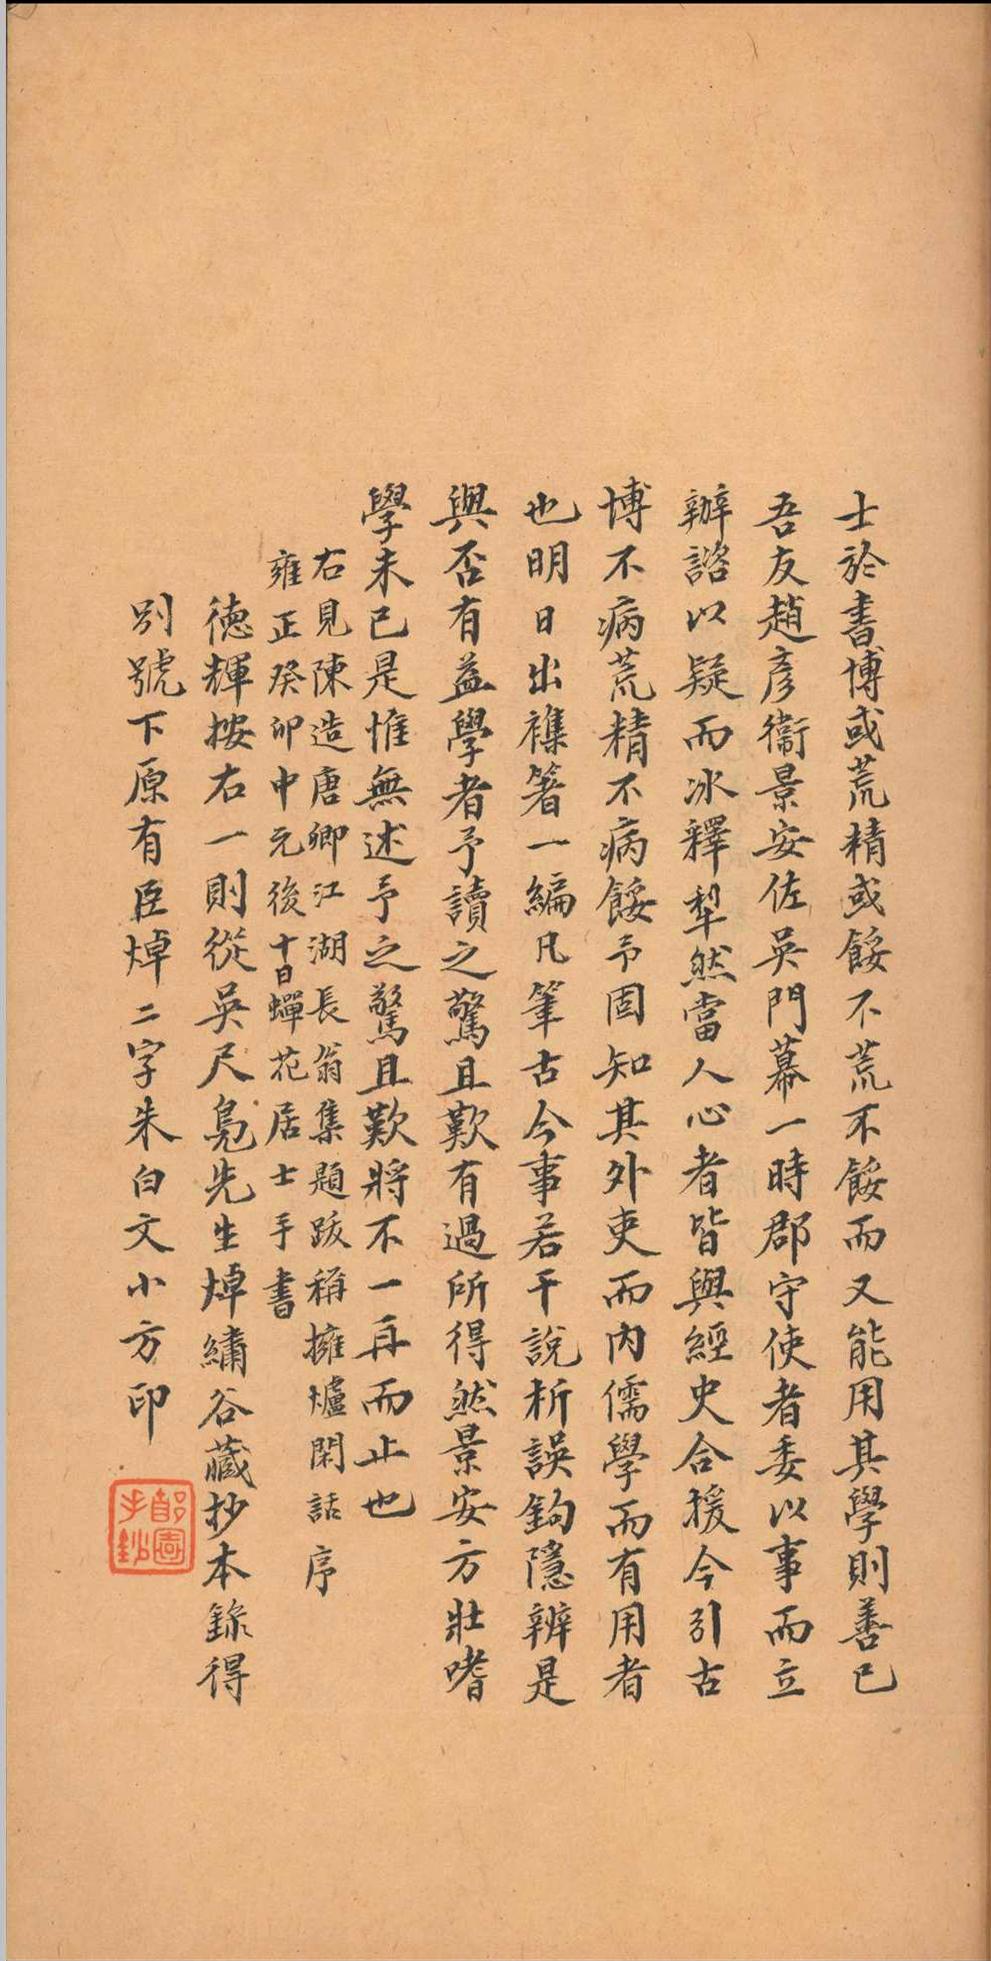 士於書博或荒精或餒不荒不餒而又能用其學則善已
吾友趙彥衞景安佐吳門幕一時郡守使者委以事而立
辦諮以疑而冰釋犁然當人心者皆與經史合援今引古
博不病荒精不病餒予固知其外吏而內儒學而有用者
也明日出襍箸一編凡筆古今事若干說析誤鉤隱辨是
與否有益學者予讀之驚且歎有過所得然景安方壯嗜
學未已是惟無述予之驚且歎將不一再而止也
右見陳造唐卿江湖長翁集題跋稱擁爐閑話序
雍正癸卯中元後十日蟬花居士手書
德輝按右一則從吳尺鳧先生焯繡谷藏抄本錄得
別號下原有臣焯二字朱白文小方印
郋園手鈔